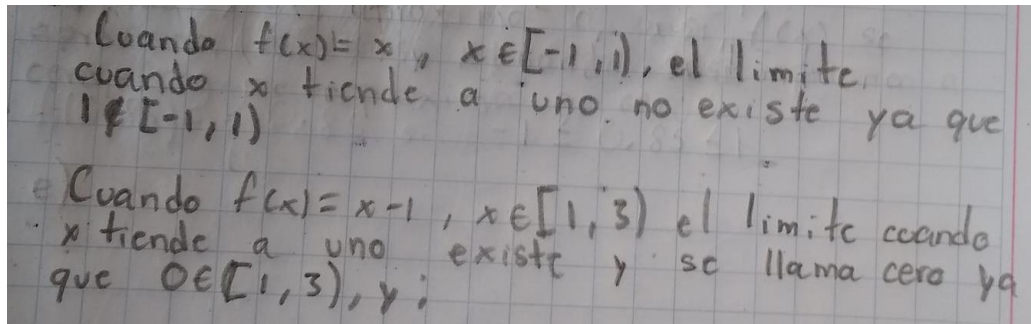 Cuando f(x)= x, x∈[-1,1), el limite
cuando x tiende a uno. no existe ya que
1∉[-1,1)
Cuando f(x)= x-1, x∈[1,3) el limite cuando
x tiende a uno existe y se llama cero ya
que 0∈[1,3), y;